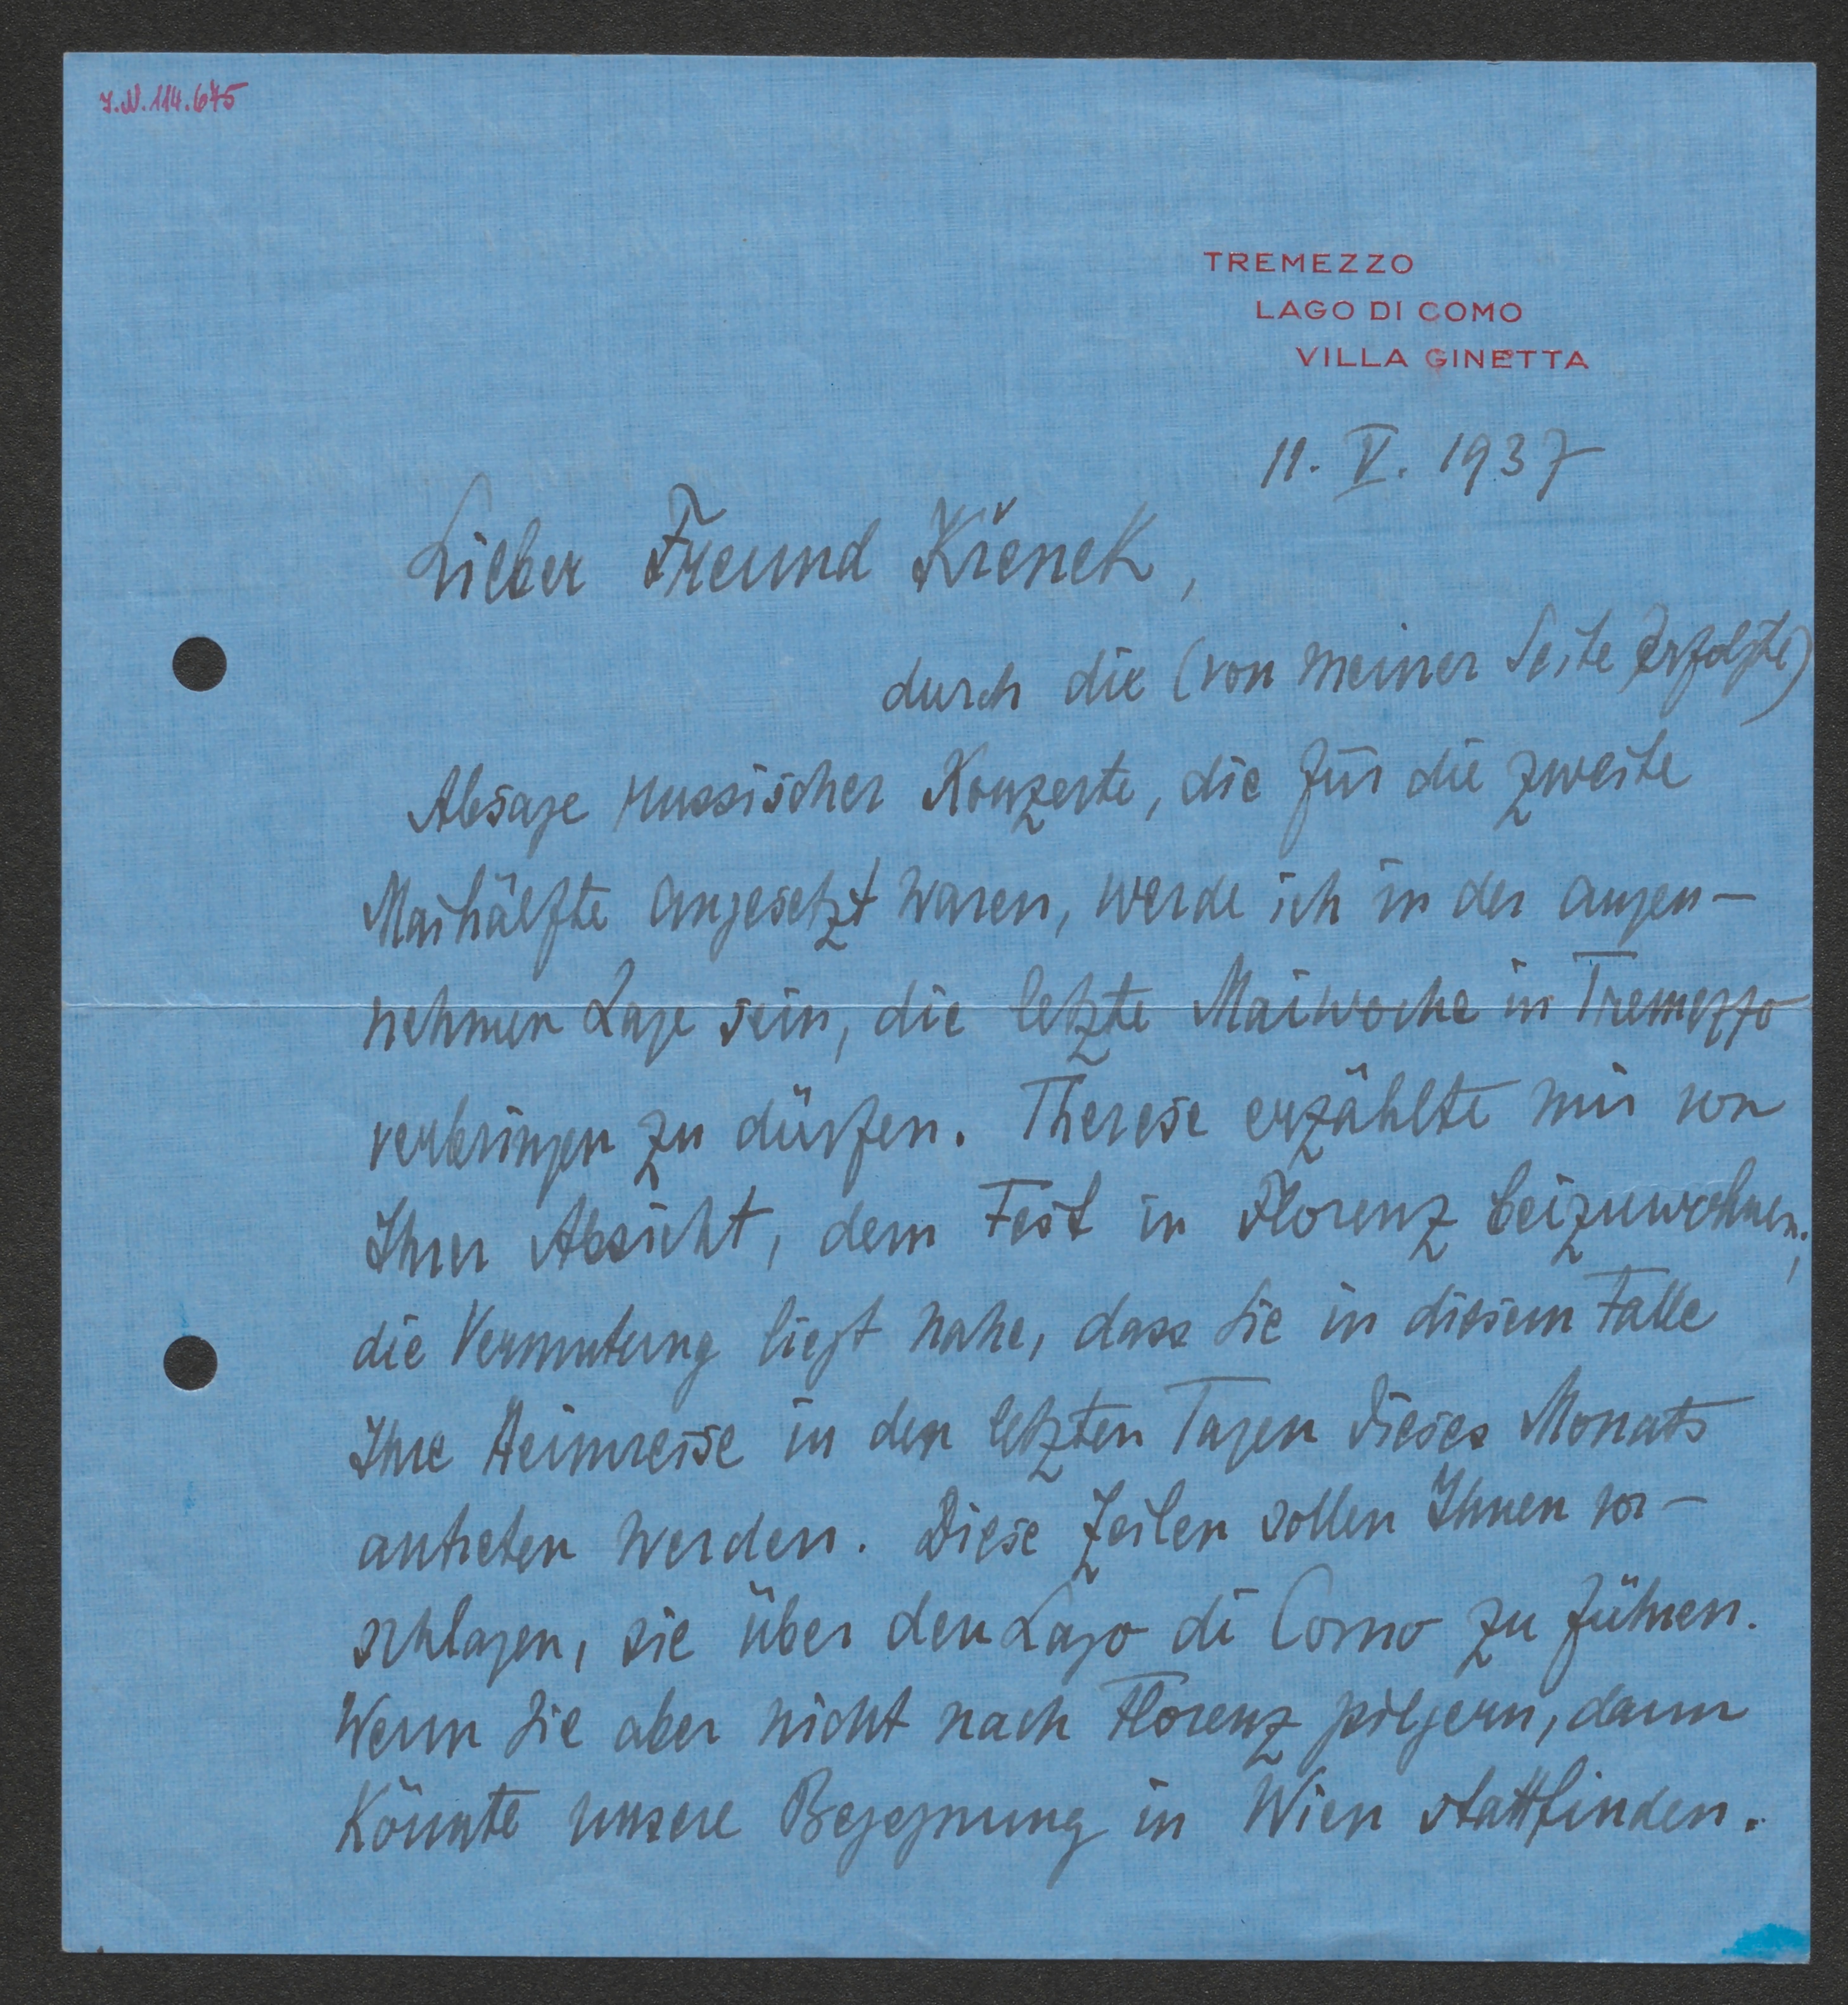 I.N. 114.675
TREMEZZO
LAGO DI COMO
VILLA GINETTA
11. V. 1937
Lieber Freund Křenek,
durch die (von meiner Seite erfolgte)
Absage russischer Konzerte, die für die zweite
Maihälfte angesetzt waren, werde ich in der ange-
nehmen Lage sein, die letzte Maiwoche in Tremezzo
verbringen zu dürfen. Therese erzählte mir von
Ihrer Absicht, dem Fest in Florenz beizuwohnen;
die Vermutung liegt nahe, dass Sie in diesem Falle
Ihre Heimreise in den letzten Tagen dieses Monats
antreten werden. Diese Zeilen sollen Ihnen vor-
schlagen, sie über den Lago di Como zu führen.
Wenn Sie aber nicht nach Florenz pilgern, dann
könnte unsere Begegnung in Wien stattfinden.